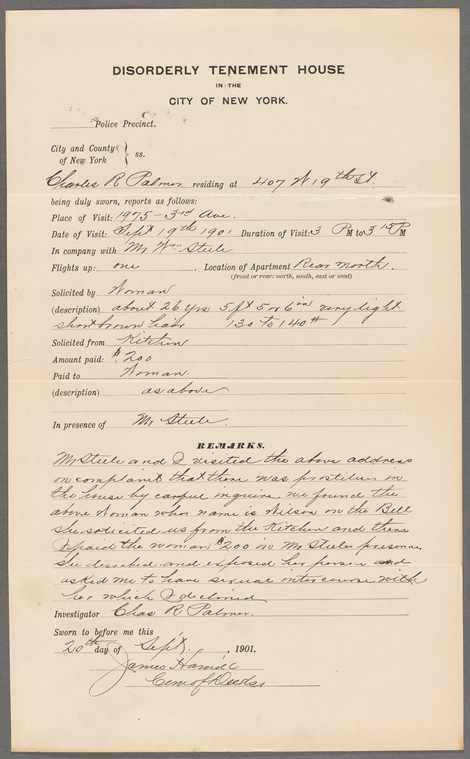 DISORDERLY TENEMENT HOUSE
IN THE
CITY OF NEW YORK.
Police Precinct.
City and County
of New York } ss.
Charles R Palmer residing at 407 W 19th St.
being duly sworn, reports as follows:
Place of Visit: 1975 - 3rd Ave.
Date of Visit: Sept 19th 1901 Duration of Visit: 3 P M to 3 15 P M
In company with Mr Wm Steele
Flights up: one . Location of Apartment Rear North.
(front or rear: north, south, east or west)
Solicited by Woman
(description) about 26 yrs 5 ft 5 or 6 in very light
short brown hair 130 to 140 #
Solicited from Kitchen
Amount paid: $2.00
Paid to Woman.
(description) as above
In presence of Mr Steele.
REMARKS.
Mr Steele and I visited the above address
on complaint that there was prostitues in
the house by careful inquire we found the
above Woman whos name is Wilson on the Bell
She solicited us from the Kitchen and there
I paid the woman $2.00 in Mr Steeles presence
she and exposed her person and
asked me to have sexual intercourse with
her which I declined.
Investigator Chas R Palmer.
Sworn to before me this
20th day of Sept. , 1901.
James
Com of Deeds